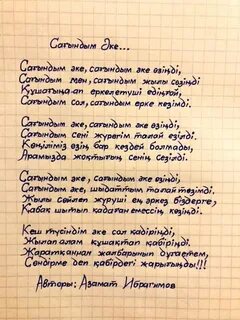 Сағындым Әке...
Сағындым әке, сағындым әке өзіңді,
Сағындым мен, сағындым жылы сөзіңді
Құшақтап еркелетуші едің ғой,
Сағындым сол, сағындым ерке кезімді.
Сағындым әке, сағындым әке өзіңді,
Сағындым сені жүрегім талай езілді.
Көңіліміз өзің бар кездей болмады,
Арамызда жоқтығың сенің сезілді.
Сағындым әке, сағындым әке өзіңді,
Сағындым әке, шыдаттым талай төзімді.
Жылы сөйлеп жүруші ең әркез біздерге,
Қабақ шытып қадаған емессің көзіңді.
Кеш түсіндім әке сол қадіріңді,
Жылап алам құшақтап қабіріңді.
Жаратқаннан жалбарынып дұға етем,
Сөндірме деп қабірдегі жарығыңды!!!
Авторы: Азамат Ибрагимов